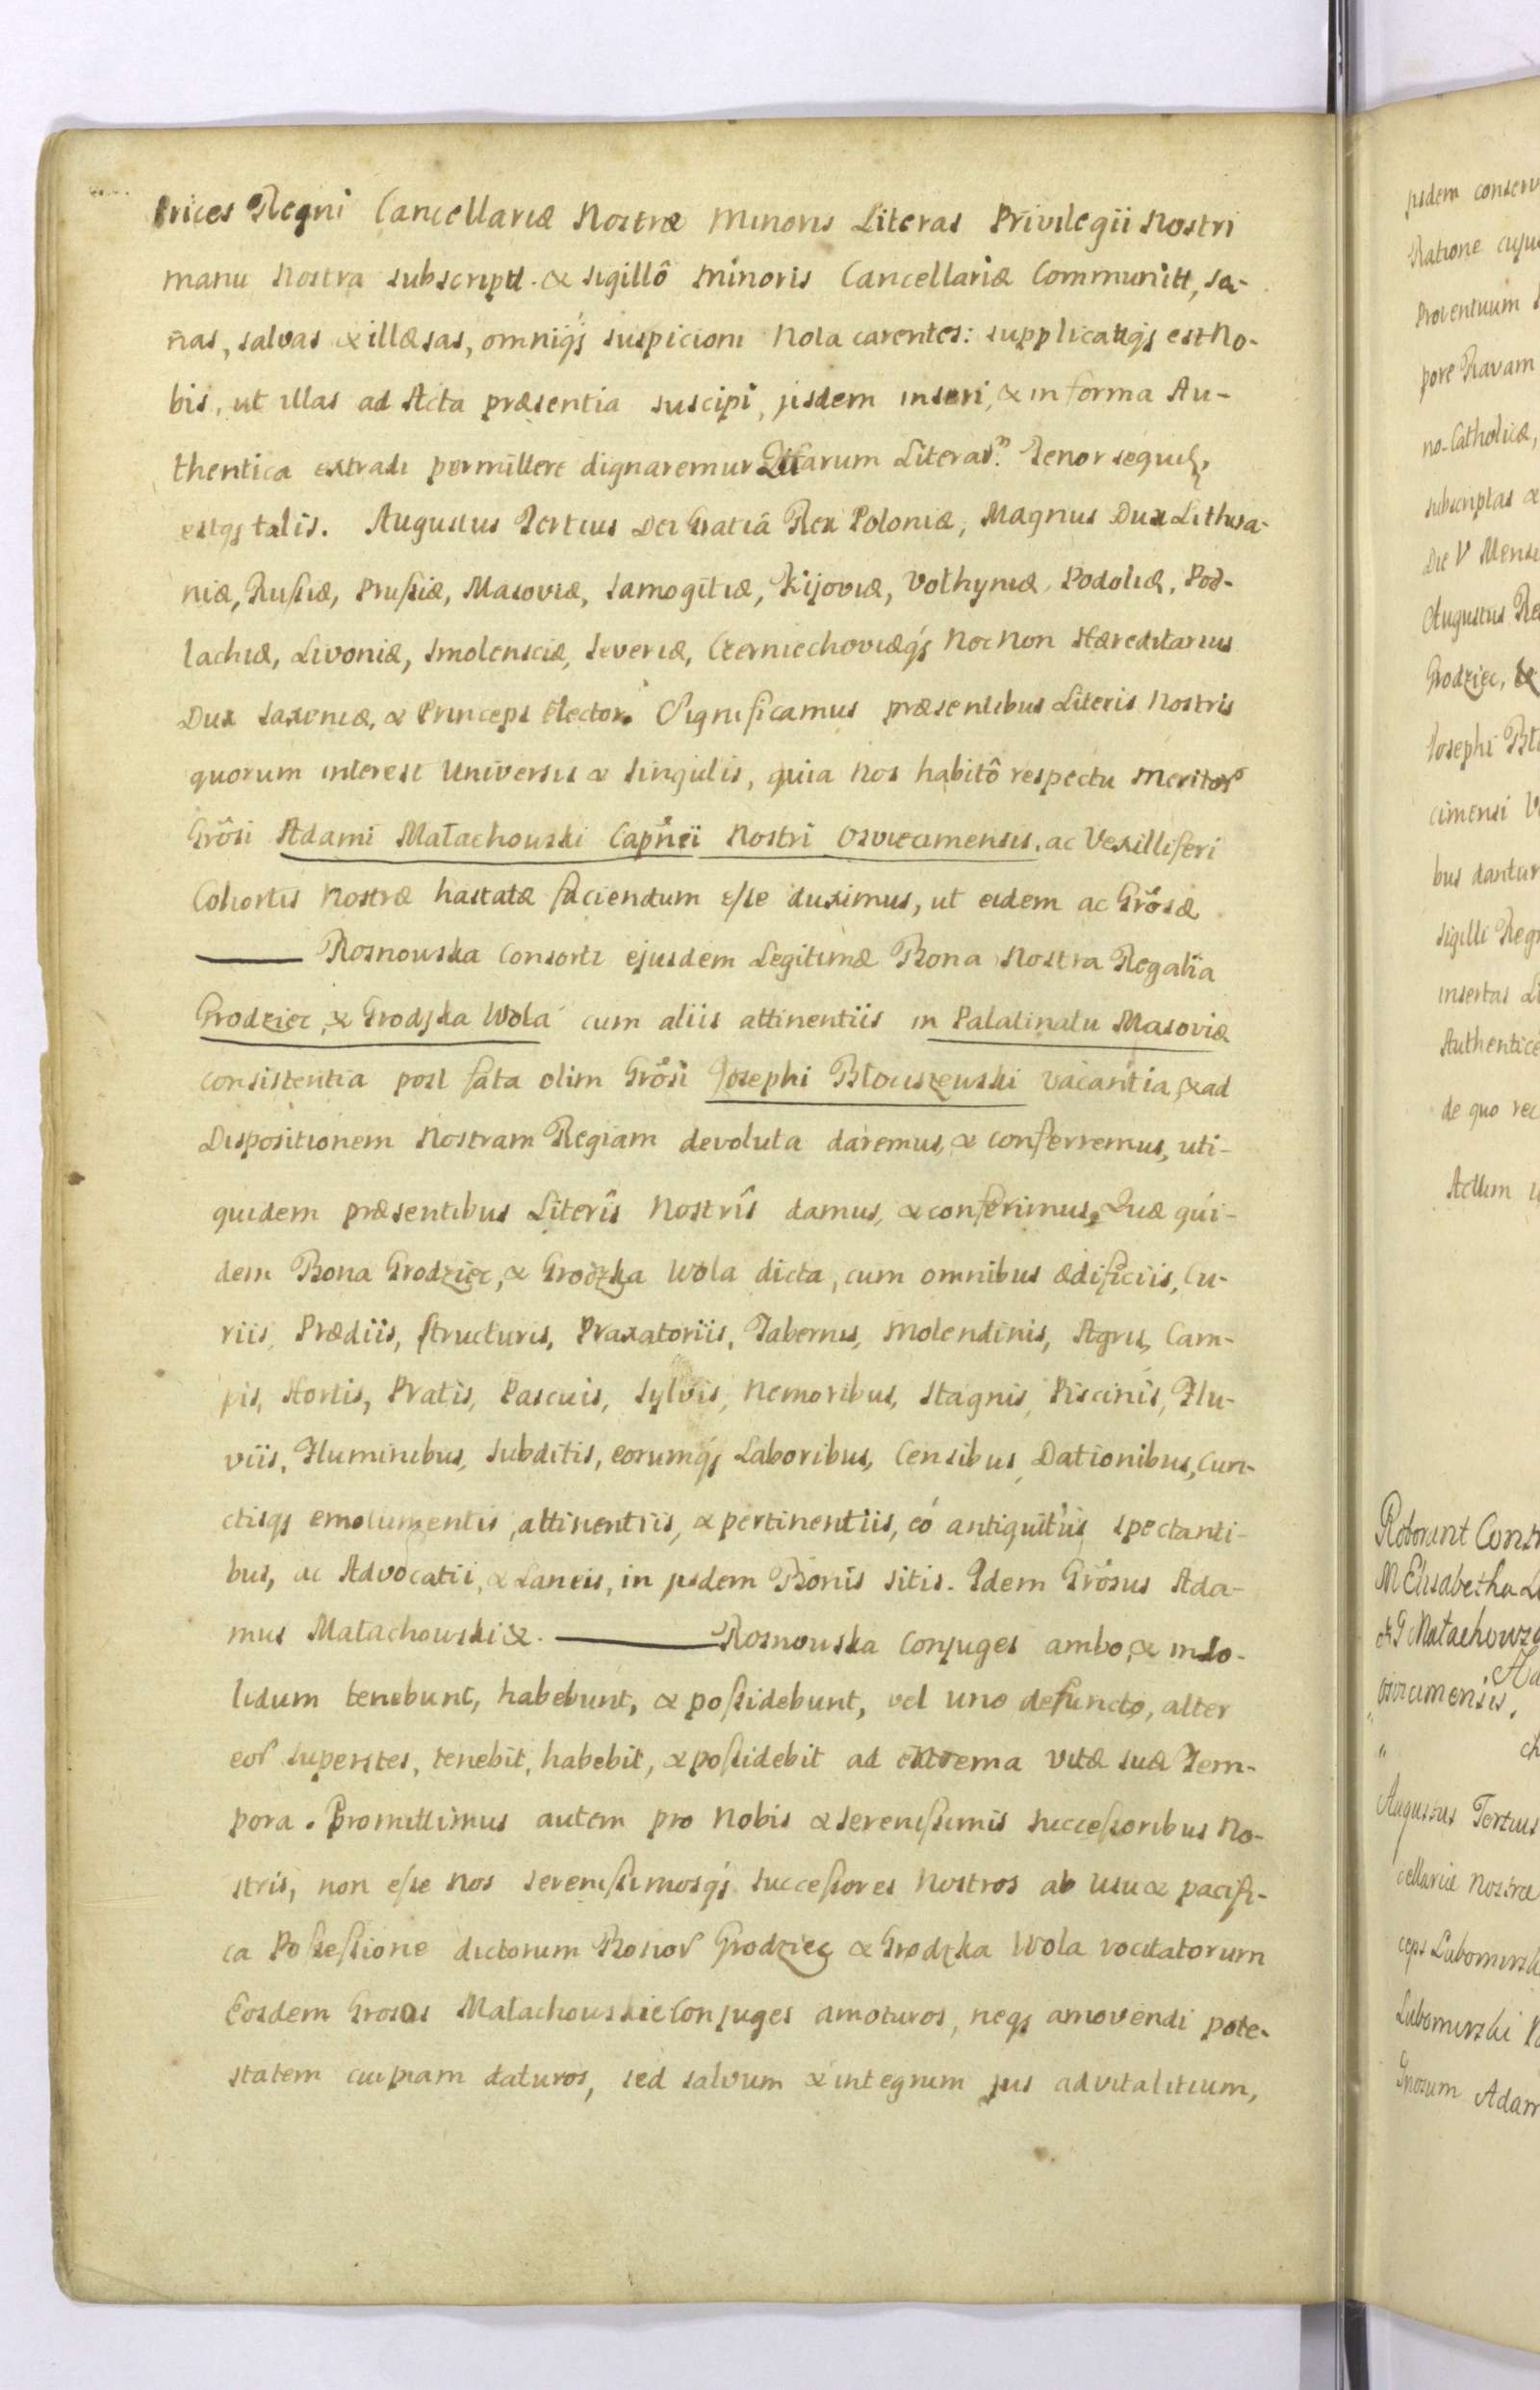 trices Regni Cancellariæ Nostræ Minoris Literas Privilegii Nostri
manu Nostra subscriptt. & sigillô Minoris Cancellariæ Communitt, sa-
nas, salvas & illæsas, omniq́ȝ suspicioni Nota carentes: supplicatuqȝ est No-
bis, ut illas ad Acta præsentia suscipi, jisdem inseri, & in forma Au-
thentica extradi permittere dignaremur Literar. Tenor sequitur
estqȝ talis. Augustus Tertius Dei Gratiâ Rex Poloniæ, Magnus Dux Lithva-
niæ, Rußiæ, Prußiæ, Masoviæ, Samogitiæ, Kijoviæ, Volhyniæ, Podoliæ, Pod-
lachiæ, Livoniæ, Smolensciæ, Severiæ, Czerniechoviæq́ȝ Nec Non Hæreditarius
Dux Saxoniæ, & Princeps Elector. Significamus præsentibus Literis Nostris
quorum interest Universis & singulis, quia Nos habitô respectu Meritor
Grôsi Adami Małachowski Capnei Nostri Osviecimensis, ac Vexilliferi
Cohortis Nostræ hastatæ faciendum eſse duximus, ut eidem ac Grôsæ
——— Rosnowska Consorti ejusdem Legitimæ Bona Nostra Regalia
Grodziec, & Grodzka Wola cum aliis attinentiis in Palatinatu Masoviæ
consistentia post fata olim Grôsi Josephi Błouszewski vacantia, & ad
Dispositionem Nostram Regiam devoluta daremus, & conferremus, uti-
quidem præsentibus Literîs Nostrîs damus, & conferimus, Quæ qui-
dem Bona Grodziec, & Grodzka Wola dicta, cum omnibus ædificiis, Cu-
riis, Prædiis, structuris, Praxatoriis, Tabernis, Molendinis, Agris, Cam-
pis, Hortis, Pratis, Pascuis, Sylvis, Nemoribus, Stagnis, Piscinis, Flu-
viis, Fluminibus, Subditis, eorumq́ȝ Laboribus, Censibus, Dationibus, Cun-
ctisqȝ emolumentis, attinentiis, & pertinentiis, eó antiquitùs spectanti-
bus, ac Advocatii, & Laneis, in jisdem Bonis sitis. Idem Grôsus Ada-
mus Małachowski & ——— Rosnowska Conjuges ambo, & in so-
lidum tenebunt, habebunt, & poßidebunt, vel uno defuncto, alter
eor superstes, tenebit, habebit, & poßidebit ad extrema vitæ suæ Tem-
pora. Promittimus autem pro Nobis & Sereniſsimis Succeſsoribus No-
stris, non eſse Nos Sereniſsimosq́ȝ Succeſsores Nostros ab Usu & pacifi-
ca Poſseſsione dictorum Bonor Grodziec & Grodzka Wola vocitatorum
Eosdem Grosos Małachowskie Conjuges amoturos, neqȝ amovendi pote-
statem cuipiam daturos, sed salvum & integrum jus advitalitium,
jisdem conserv
Ratione cuju
Proventuum
pore Ravam
no-Catholicæ,
subscriptas &
Die V Mens
Augustus Re
Grodziec, &
Josephi Bło
cimensi
bus dantur
Sigilli Reg
insertas Li
Authentice
de quo rec
Actum
Roborant Cons
M Elisabetha
& G Małachows
Ad
Osviecimensis,
" ch
Augustus Tertius
cellariæ Nostræ
ceps Lubomirsk
Lubomirski
Gnosum Adam